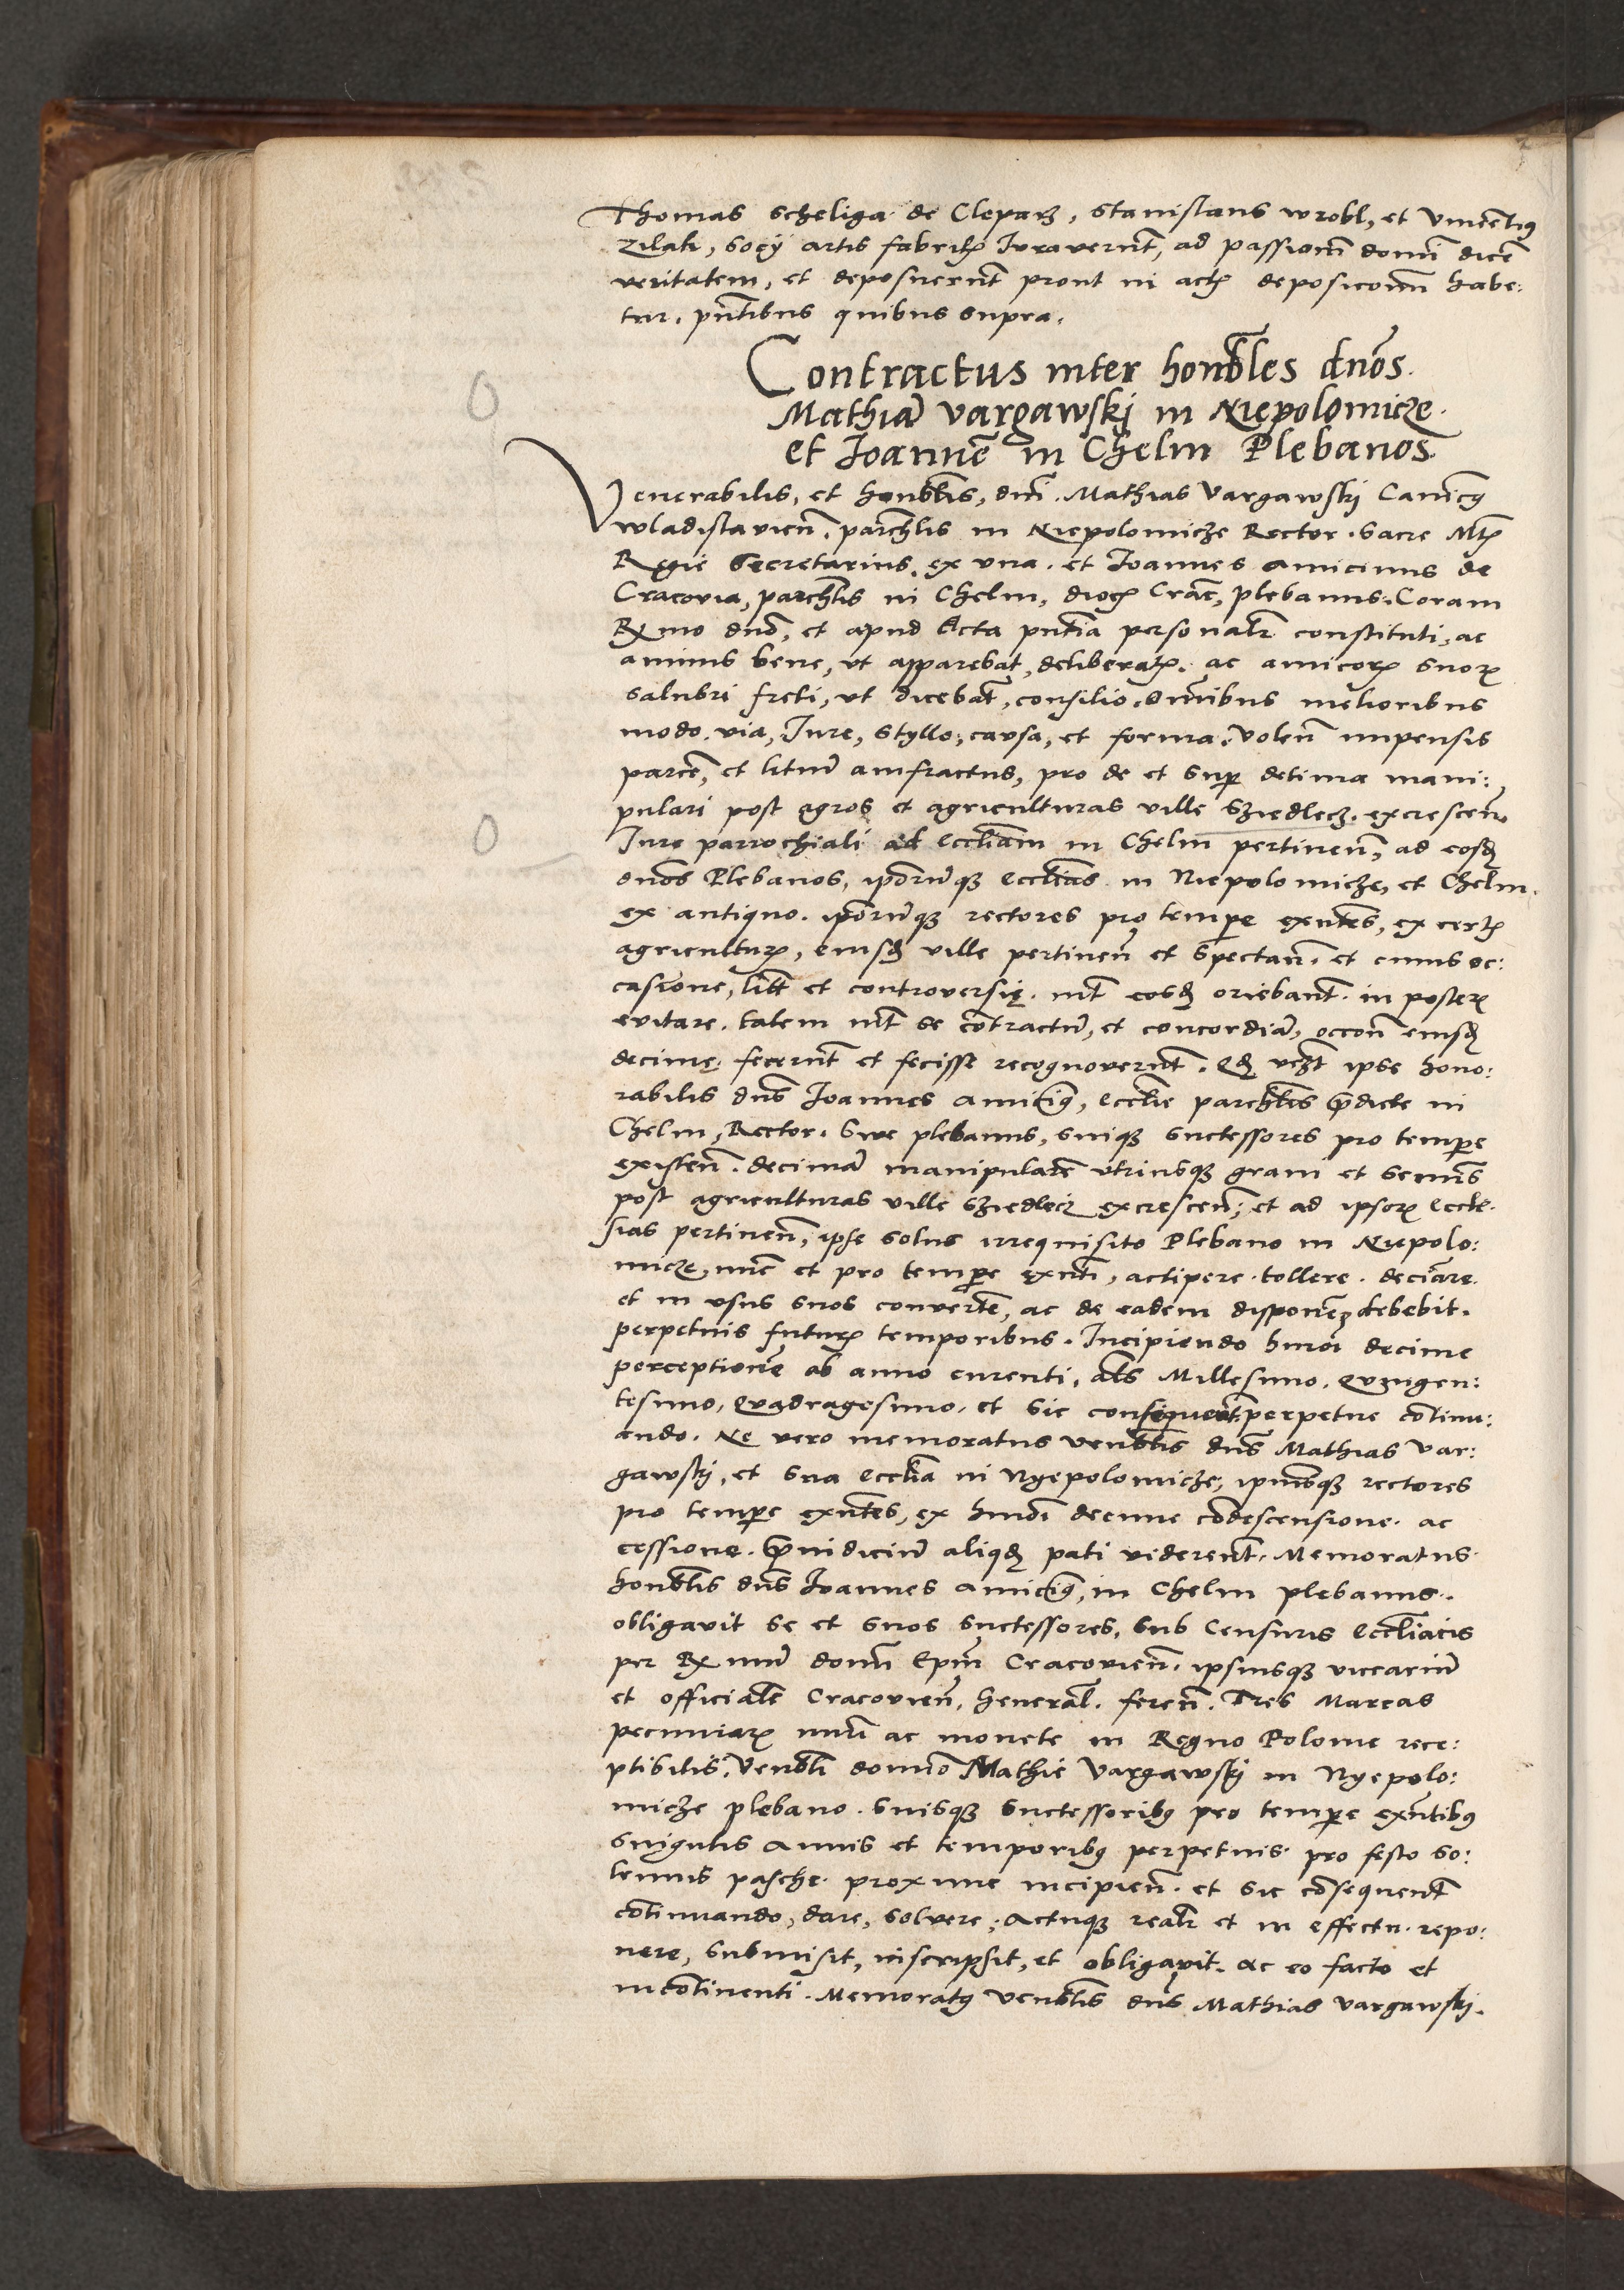 Thomas scheliga de Cleparz, Stanislaus wrobl, et Vincentius
Zilak, socÿ artis fabriliũ Iuraverũt, ad passionẽ domĩ dicẽ
veritatem, et deposuerũt prout in actis deposicionũ habe:
tur. pñtibus quibus supra.
Contractus inter honbĩles dños.
Mathiã vargawskj in Niepolomicze.
et Joannẽ in Chelm Plebanos.
Venerabilis, et honbĩlis, dñi. Mathias Vargawskj Canicus
wladislavieñ. parchĩlis in Niepolomicze Rector. Sacre Mtis
Regie Secretarius. ex vna. et Joannes Amicinus de
Cracovia, parchĩlis in Chelm, dioc̃ Crac̃, plebanus. Coram
Rx̃mo dño, et apud Acta pñtia personalr̃ constituti, ac
animis bene, vt apparebat, deliberatis. ac amicorũ suorũ
salubri freti, vt dicebãt, consilio. Omnibus melioribus
modo. via, Iure, styllo, causa, et forma. Voleñ impensis
parcẽ, et litiũ amfractus, pro de et sup̃ decima mani:
pulari post agros et agriculturas ville Sziedlecz. excresceñ.
Iure parrochiali ad eccliam in Chelm pertineñ, ad eosdẽ
dños Plebanos, ip̃orũq̃ ecclias in Niepolomicze, et Chelm.
ex antiquo. ip̃orũq̃ rectores pro tempe exñtes, ex certis
agriculturis, eiusdẽ ville pertineñ et spectañ. et cuius oc:
casione, lites et controversię. int̃ eosdẽ oriebant̃. in posterũ
evitare. talem int̃ se cõtractũ, et concordiã, occõne eiusdẽ
decimę. fecerũt et fecisse recognoverũt. Qd̃ vcz̃t ipse hono:
rabilis dñs Joannes Amicinus, ecclie parchĩlis p̃dicte in
Chelm, Rector. Sive plebanus, suiq̃ successores pro tempe
existeñ. decimã manipularẽ vtriusq̃ grani et seminis
post agriculturas ville Sziedlecz excresceñ, et ad ipsorũ eccle:
sias pertineñ, ipse solus irrequisito Plebano in Niepolo:
micze, nũc et pro tempe exñti, accipere. tollere. decĩare.
et in vsus suos convertẽ, ac de eadem disponẽ, debebit.
perpetuis futuris temporibus. Incipiendo hmõi decime
perceptionẽ ab anno curenti, als̃ Millesimo. Quingen:
tesimo, Quadragesimo, et sic consequent̃. perpetue cõtinu:
ando. Ne vero memoratus venblĩs dñs Mathias Var:
gawskj, et sua Ecclia in Nyepolomicze, ipsiusq̃ rectores
pro tempe exñtes, ex hmõi decime cõdescensione. ac
cessione. p̃iudiciũ aliqd̃ pati viderent̃. Memoratus.
honblĩs dñs Joannes Amicinus, in Chelm plebanus.
obligavit se et suos successores, sub Censuris eccliacis
per Rx̃mũ domĩ Ep̃m Cracovieñ. ipsiusq̃ vicariũ
et officialẽ Cracovieñ, Generaľ. fereñ. Tres Marcas
pecuniarũ nũi ac monete in Regno Polonie rece:
ptibilis, Venbli domio Mathie Vargawskj in Nyepolo:
micze plebano. suisq̃ successoribus pro tempe exñtibus
singulis Annis et temporibus perpetuis. pro festo so:
lennis pasche. proxime incipieñ. et sic cõsequent̃
cõtinuando, dare, solvere, actuq̃ realr̃ et in effectu. repo:
nere, submisit, inscripsit, et obligavit. ac eo facto et
incõtinenti. Memoratus Venblĩs dñs Mathias Vargawskj.